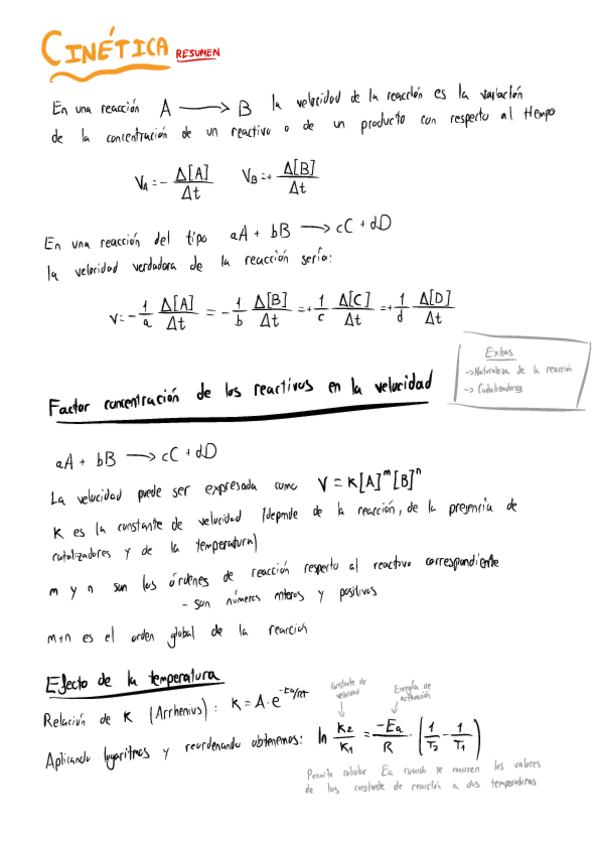 CINÉTICA RESUMEN
En una reacción A ⟶ B la velocidad de la reacción es la variación
de la concentración de un reactivo o de un producto con respecto al tiempo
V_A = - Δ[A]/Δt   V_B = + Δ[B]/Δt
En una reacción del tipo aA + bB ⟶ cC + dD
la velocidad verdadora de la reacción sería:
V = - 1/a Δ[A]/Δt = - 1/b Δ[B]/Δt = + 1/c Δ[C]/Δt = + 1/d Δ[D]/Δt
Extras
-> Naturaleza de la reacción
-> Catalizadores
Factor concentración de los reactivos en la velocidad
aA + bB ⟶ cC + dD
La velocidad puede ser expresada como V = K[A]^m [B]^n
K es la constante de velocidad (depende de la reacción, de la presencia de
catalizadores y de la temperatura)
m y n son los órdenes de reacción respecto al reactivo correspondiente
- son números enteros y positivos
m+n es el orden global de la reacción
Efecto de la temperatura
Relación de K (Arrhenius): K = A · e^-Ea/RT
constante de velocidad
Energía de activación
Aplicando logaritmos y reordenando obtenemos: ln K₂/K₁ = -Ea/R · (1/T₂ - 1/T₁)
Permite calcular Ea cuando se conocen los valores
de las constante de reacción a dos temperaturas